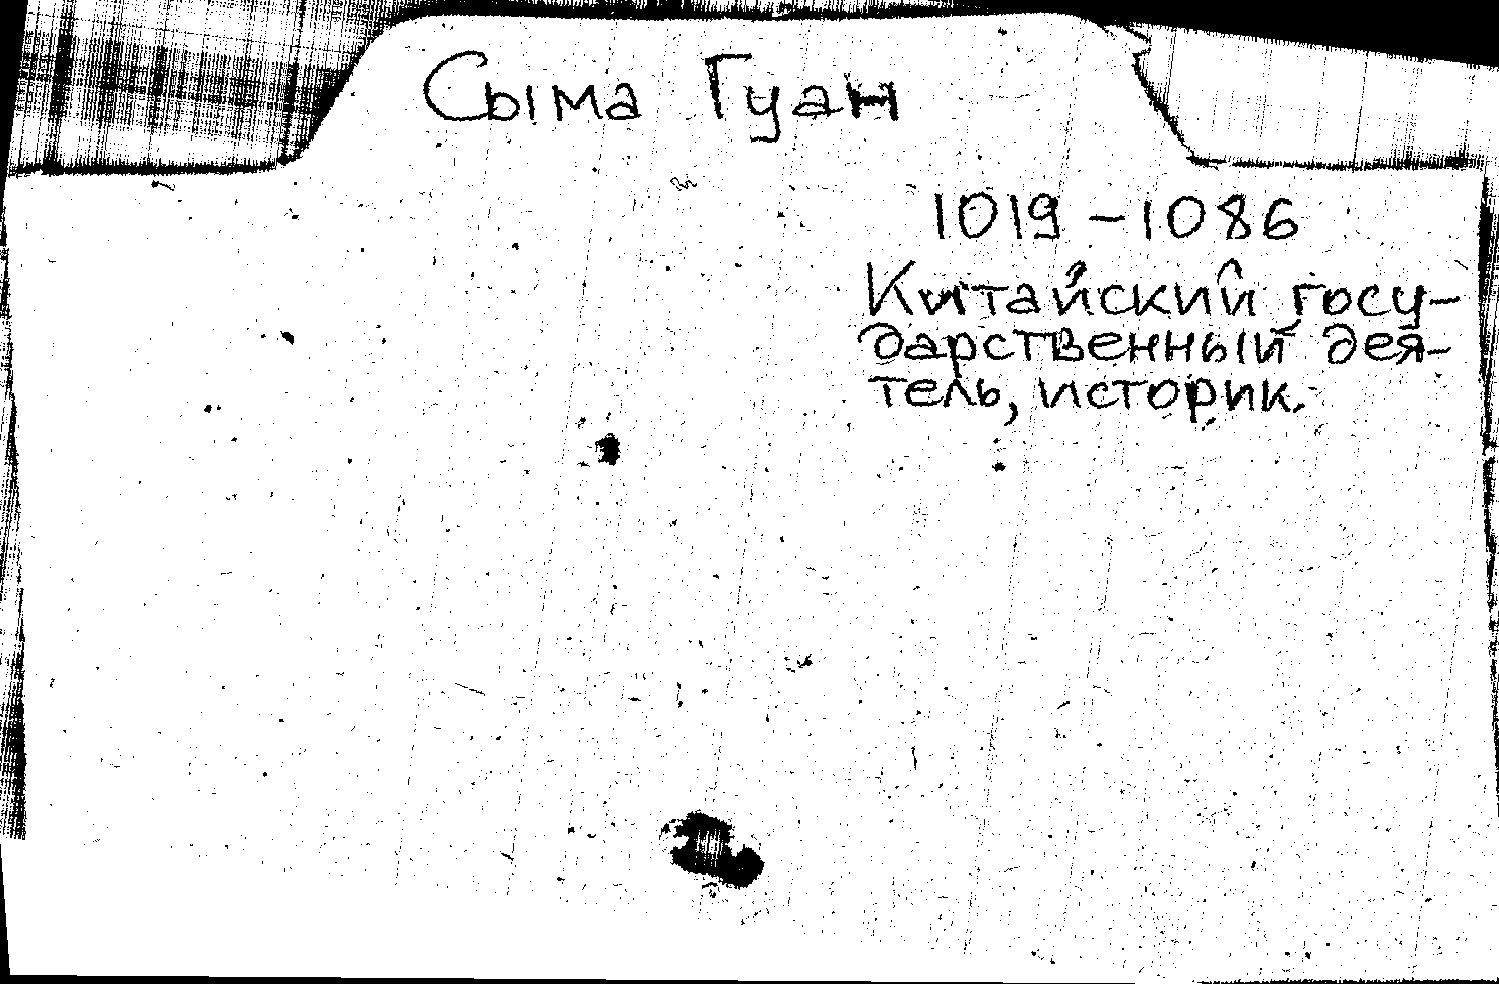 Сыма Гуан
1019 - 1086
Китайский госу-
дарственный дея-
тель, историк.